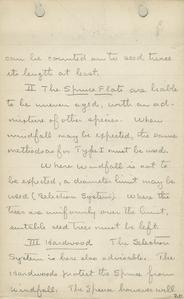 can be counted on to seed twice
its length at least.
II The Spruce Flats are liable
to be uneven aged, with an ad-
mixture of other species. When
windfall may be expected, the same
methods as for Type I must be used.
Where Windfall is not to
be expected, a diameter limit may be
used (Selection System). Where the
trees are uniformly over the limit,
suitable seed trees must be left.
III Hardwood The Selection
System is here also advisable. The
Hardwoods protect the Spruce from
Windfall. The Spruce however will